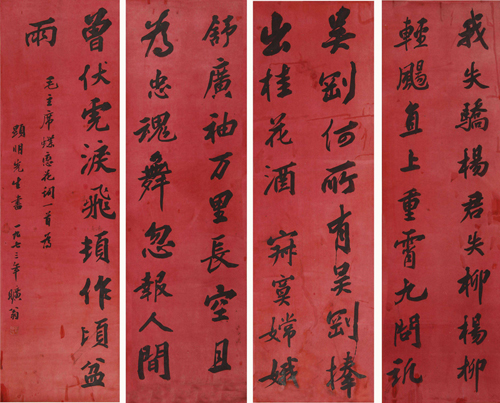 我失驕楊君失柳楊柳
輕颺直上重霄九問訊
吳剛何所有吳剛捧
出桂花酒寂寞嫦娥
舒廣袖万里長空且
為忠魂舞忽報人間
曾伏虎淚飛頓作頃盆
雨
毛主席蝶恋花詞一首為
顯明先生書 一九七三年 曠翁